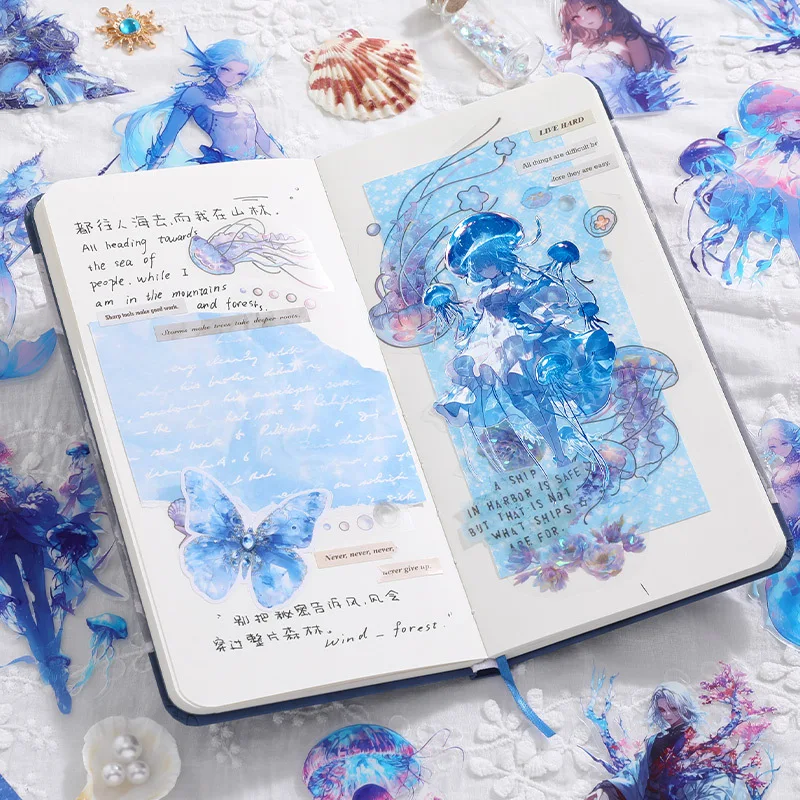 都往人海去,而我在山林.
All heading towards
the sea of
people, while I
am in the mountains
and forests.
Sharp tools make good work.
Storms make trees take deeper roots.
Never, never, never,
never give up.
"别把秘密告诉风,风会
穿过整片森林。
Wind _ forest."
LIVE HARD
All things are difficult be
fore they are easy.
A SHIP
IN HARBOR IS SAFE
BUT THAT IS NOT
WHAT SHIPS
ARE FOR